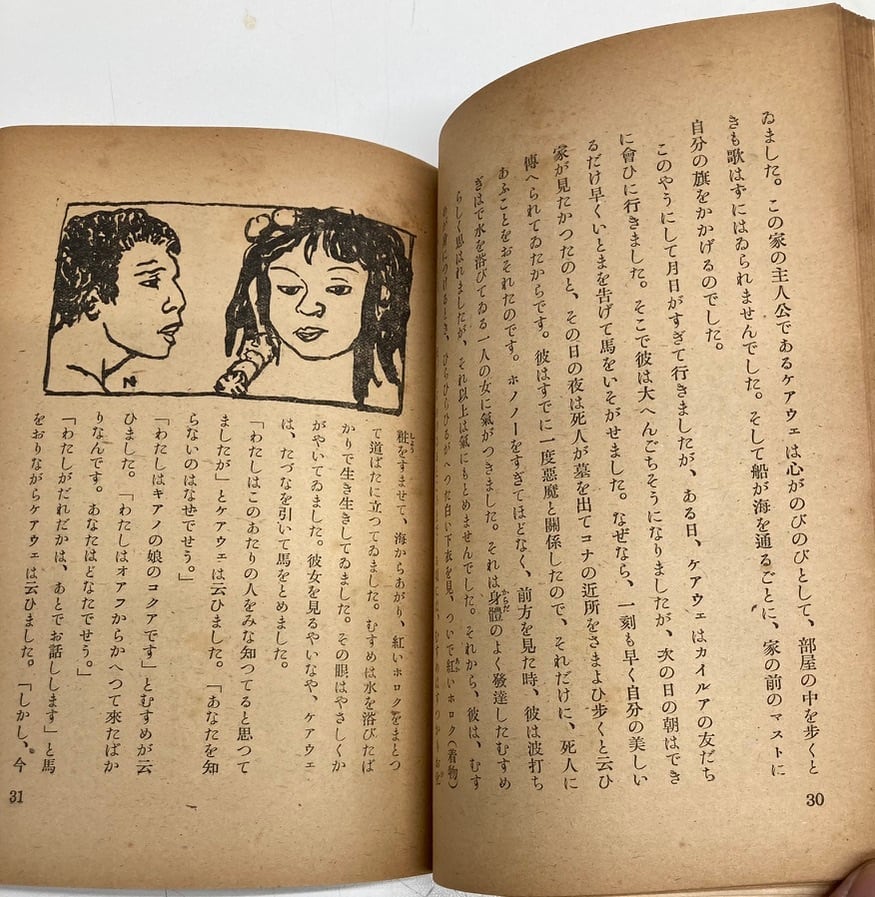 ゐました。この家の主人公であるケアウェは心がのびのびとして、部屋の中を歩くと
きも歌はずにはゐられませんでした。そして船が海を通るごとに、家の前のマストに
自分の旗をかかげるのでした。
このやうにして月日がすぎて行きましたが、ある日、ケアウェはカイルアの友だち
に會ひに行きました。そこで彼は大へんごちそうになりましたが、次の日の朝はでき
るだけ早くいとまを告げて馬をいそがせました。なぜなら、一刻も早く自分の美しい
家が見たかつたのと、その日の夜は死人が墓を出てコナの近所をさまよひ歩くと云ひ
傳へられてゐたからです。彼はすでに一度惡魔と關係したので、それだけに、死人に
あふことをおそれたのです。ホノノーをすぎてほどなく、前方を見た時、彼は波打ち
ぎはで水を浴びてゐる一人の女に氣がつきました。それは身體のよく發達したむすめ
からだ
らしく思はれましたが、それ以上は氣にもとめませんでした。それから、彼は、むす
めが身につけるとき、ひらひらひるがへつた白い下衣を見、ついで紅いホロク(着物)
あか
30
粧をすませて、海からあがり、紅いホロクをまとつ
しやう
て道ばたに立つてゐました。むすめは水を浴びたば
かりで生き生きしてゐました。その眼はやさしくか
がやいてゐました。彼女を見るやいなや、ケアウェ
は、たづなを引いて馬をとめました。
「わたしはこのあたりの人をみな知つてると思つて
ましたが」とケアウェは云ひました。「あなたを知
らないのはなぜでせう。」
「わたしはキアノの娘のコクアです」とむすめが云
ひました。「わたしはオアフからかへつて來たばか
りなんです。あなたはどなたでせう。」
「わたしがだれだかは、あとでお話しします」と馬
をおりながらケアウェは云ひました。「しかし、今
N
31